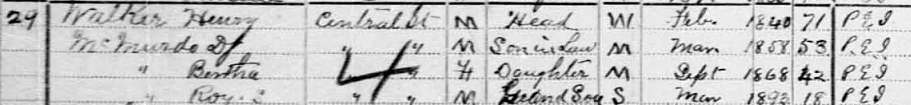 29 Walker Henry Central St M Head W Feb. 1840 71 P.E.I
McMurdo D J " " M Son in Law M Mar 1858 53 P.E.I
" Bertha 4 " F Daughter M Sept 1868 42 P.E.I
" Roy. S " " M Grand Son S Mar 1892 18 P.E.I